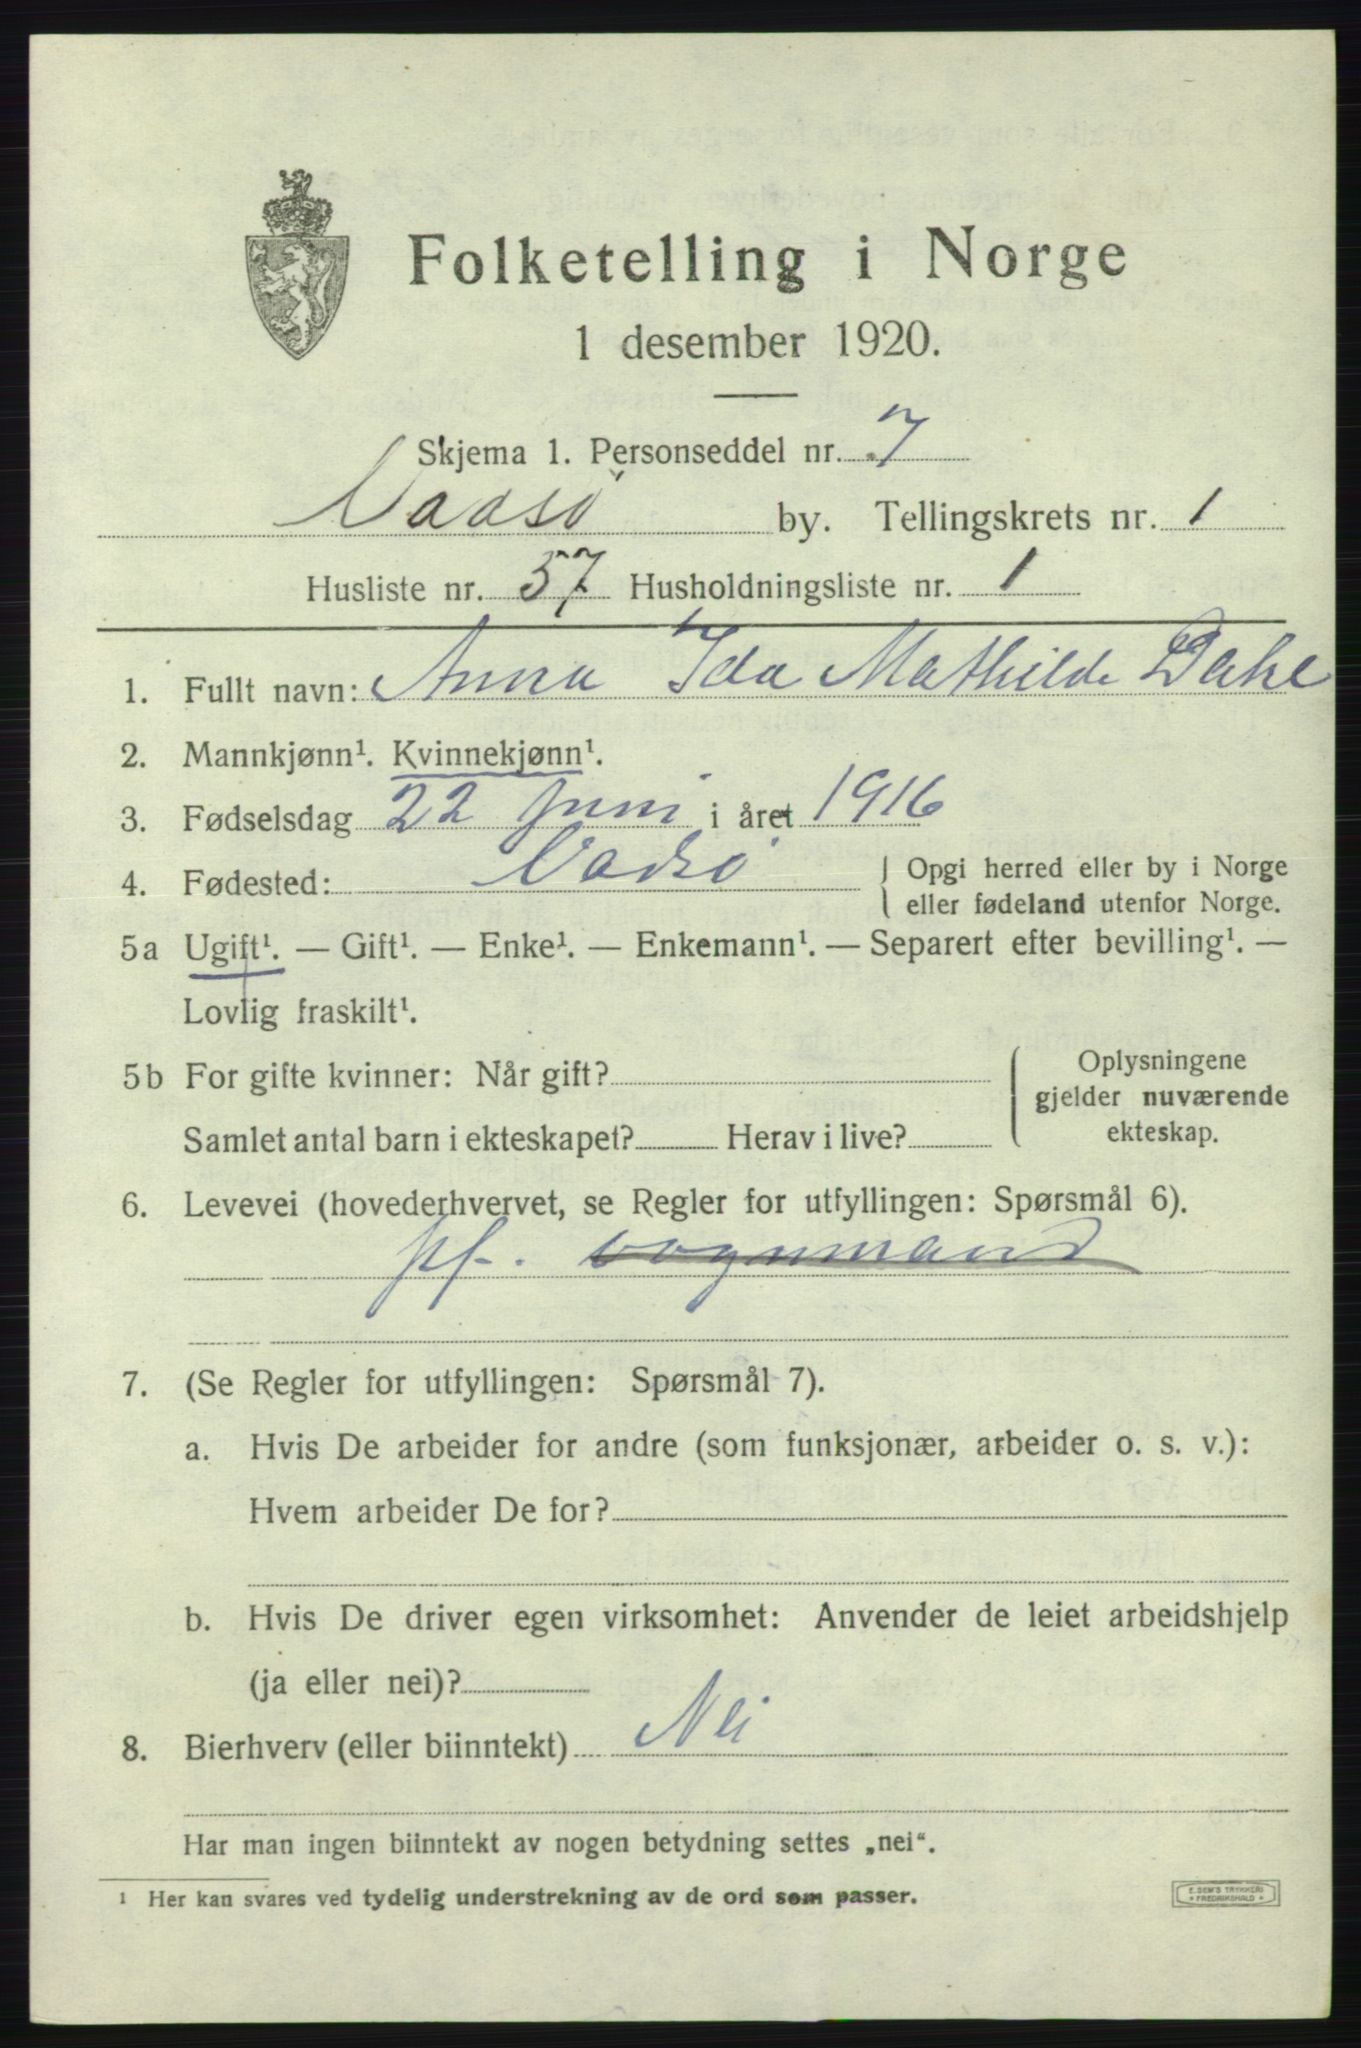 Folketelling i Norge
1 desember 1920.
Skjema 1. Personseddel nr. 7
Vadsø by. Tellingskrets nr. 1
Husliste nr. 57 Husholdningsliste nr. 1
1. Fullt navn: Anna Ida Mathilde Dahl
2. Mannkjønn¹. Kvinnekjønn¹.
3. Fødselsdag 22 juni i året 1916
4. Fødested: Vadsø { Opgi herred eller by i Norge
eller fødeland utenfor Norge.
5a Ugift¹. — Gift¹. — Enke¹. — Enkemann¹. — Separert efter bevilling¹. —
Lovlig fraskilt¹.
5b For gifte kvinner: Når gift? { Oplysningene
gjelder nuværende
Samlet antal barn i ekteskapet? Herav i live? ekteskap.
6. Levevei (hovederhvervet, se Regler for utfyllingen: Spørsmål 6).
pf. vognmand
7. (Se Regler for utfyllingen: Spørsmål 7).
a. Hvis De arbeider for andre (som funksjonær, arbeider o. s. v.):
Hvem arbeider De for?
b. Hvis De driver egen virksomhet: Anvender de leiet arbeidshjelp
(ja eller nei)?
8. Bierhverv (eller biinntekt) Nei
Har man ingen biinntekt av nogen betydning settes „nei“.
¹ Her kan svares ved tydelig understrekning av de ord som passer.
E. SEM'S TRYKKERI
• FREDRIKSHALD •